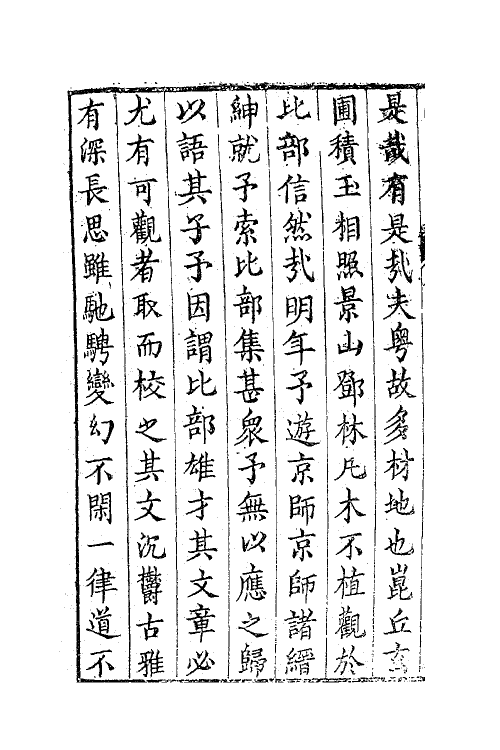 是哉有是哉夫粤故多材地也崑丘玄
圃積玉相照景山鄧林凡木不植觀於
比部信然哉明年予遊京師京師諸縉
紳就予索比部集甚衆予無以應之歸
以語其子予因謂比部雄才其文章必
尤有可觀者取而校之其文沉欝古雅
有深長思雖馳騁變幻不閑一律道不